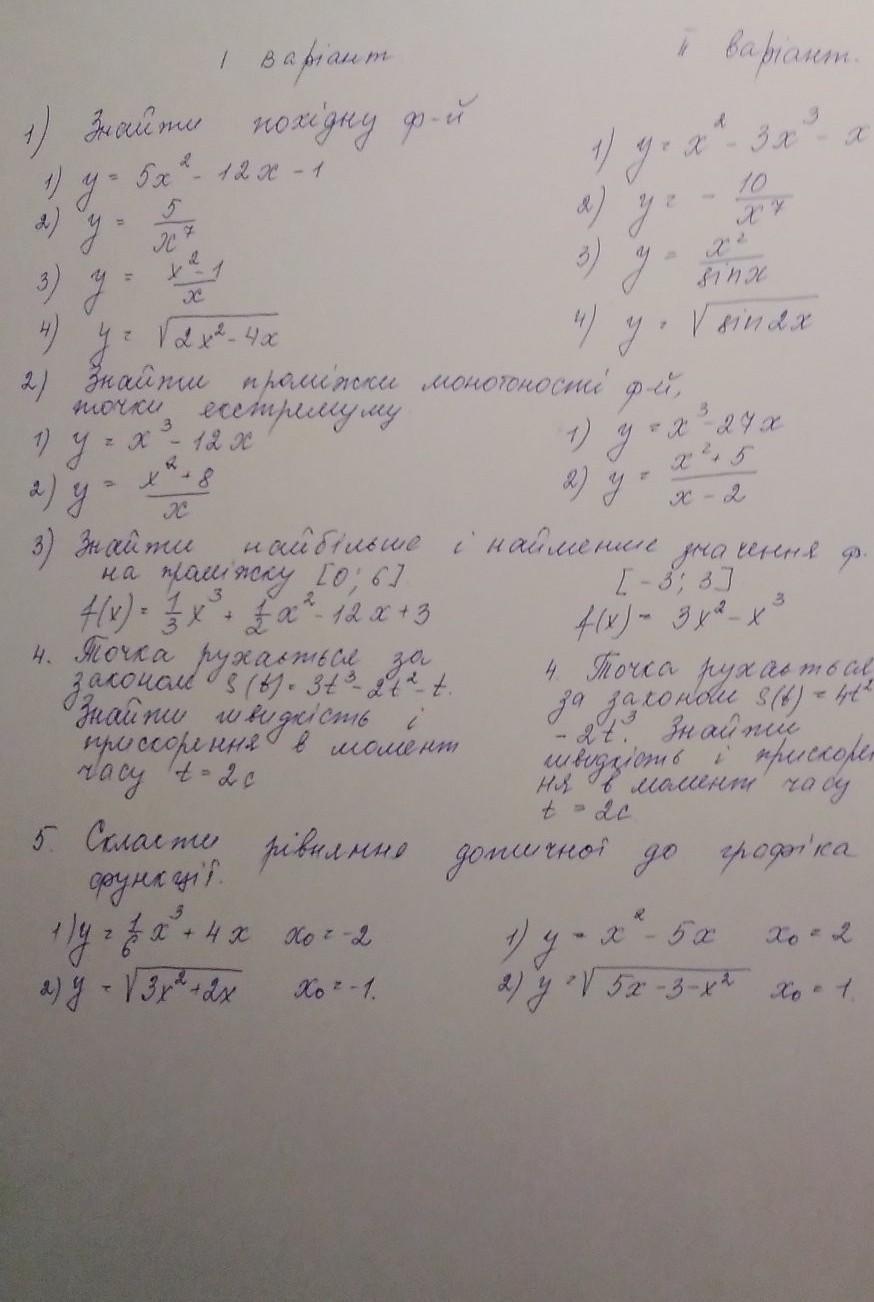 I варіант
II варіант.
1) Знайти похідну ф-й
1) y = 5x² - 12x - 1
1) y = x² - 3x³ - x
2) y = 5/x⁷
2) y = - 10/x⁷
3) y = (x² - 1)/x
3) y = x²/sinx
4) y = √(2x² - 4x)
4) y = √(sin2x)
2) Знайти проміжки монотоності ф-й,
точки екстремуму
1) y = x³ - 12x
1) y = x³ - 27x
2) y = (x² + 8)/x
2) y = (x² + 5)/(x - 2)
3) Знайти найбільше і найменше значення ф.
на проміжку [0; 6]
[-3; 3]
f(x) = 1/3 x³ + 1/2 x² - 12x + 3
f(x) = 3x² - x³
4. Точка рухається за
законом S(t) = 3t³ - 2t² - t.
Знайти швидкість і
прискорення в момент
часу t = 2с
4. Точка рухається
за законом S(t) = 4t²
- 2t³. Знайти
швидкість і прискорен
ня в момент часу
t = 2с
5. Скласти рівняння дотичної до графіка
функції.
1) y = 1/6 x³ + 4x x₀ = -2
1) y = x² - 5x x₀ = 2
2) y = √(3x² + 2x) x₀ = -1.
2) y = √(5x - 3 - x²) x₀ = 1